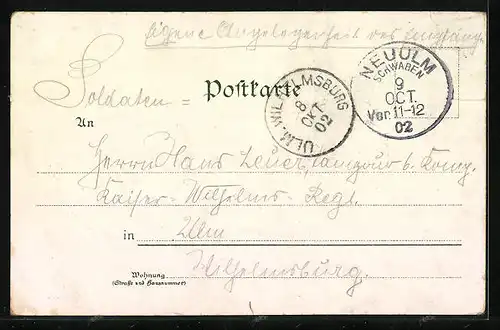 Eigene Angelegenheit des Empfängers
Soldaten = Postkarte
NEUULM
SCHWABEN
9
OCT.
Vor. 11-12
02
ULM. WILHELMSBURG
8
OKT.
02
An
Herrn Hans Tambour b. König
Kaiser-Wilhelms-Regt.
in Ulm
Wilhelmsburg.
Wohnung
(Straße und Hausnummer)